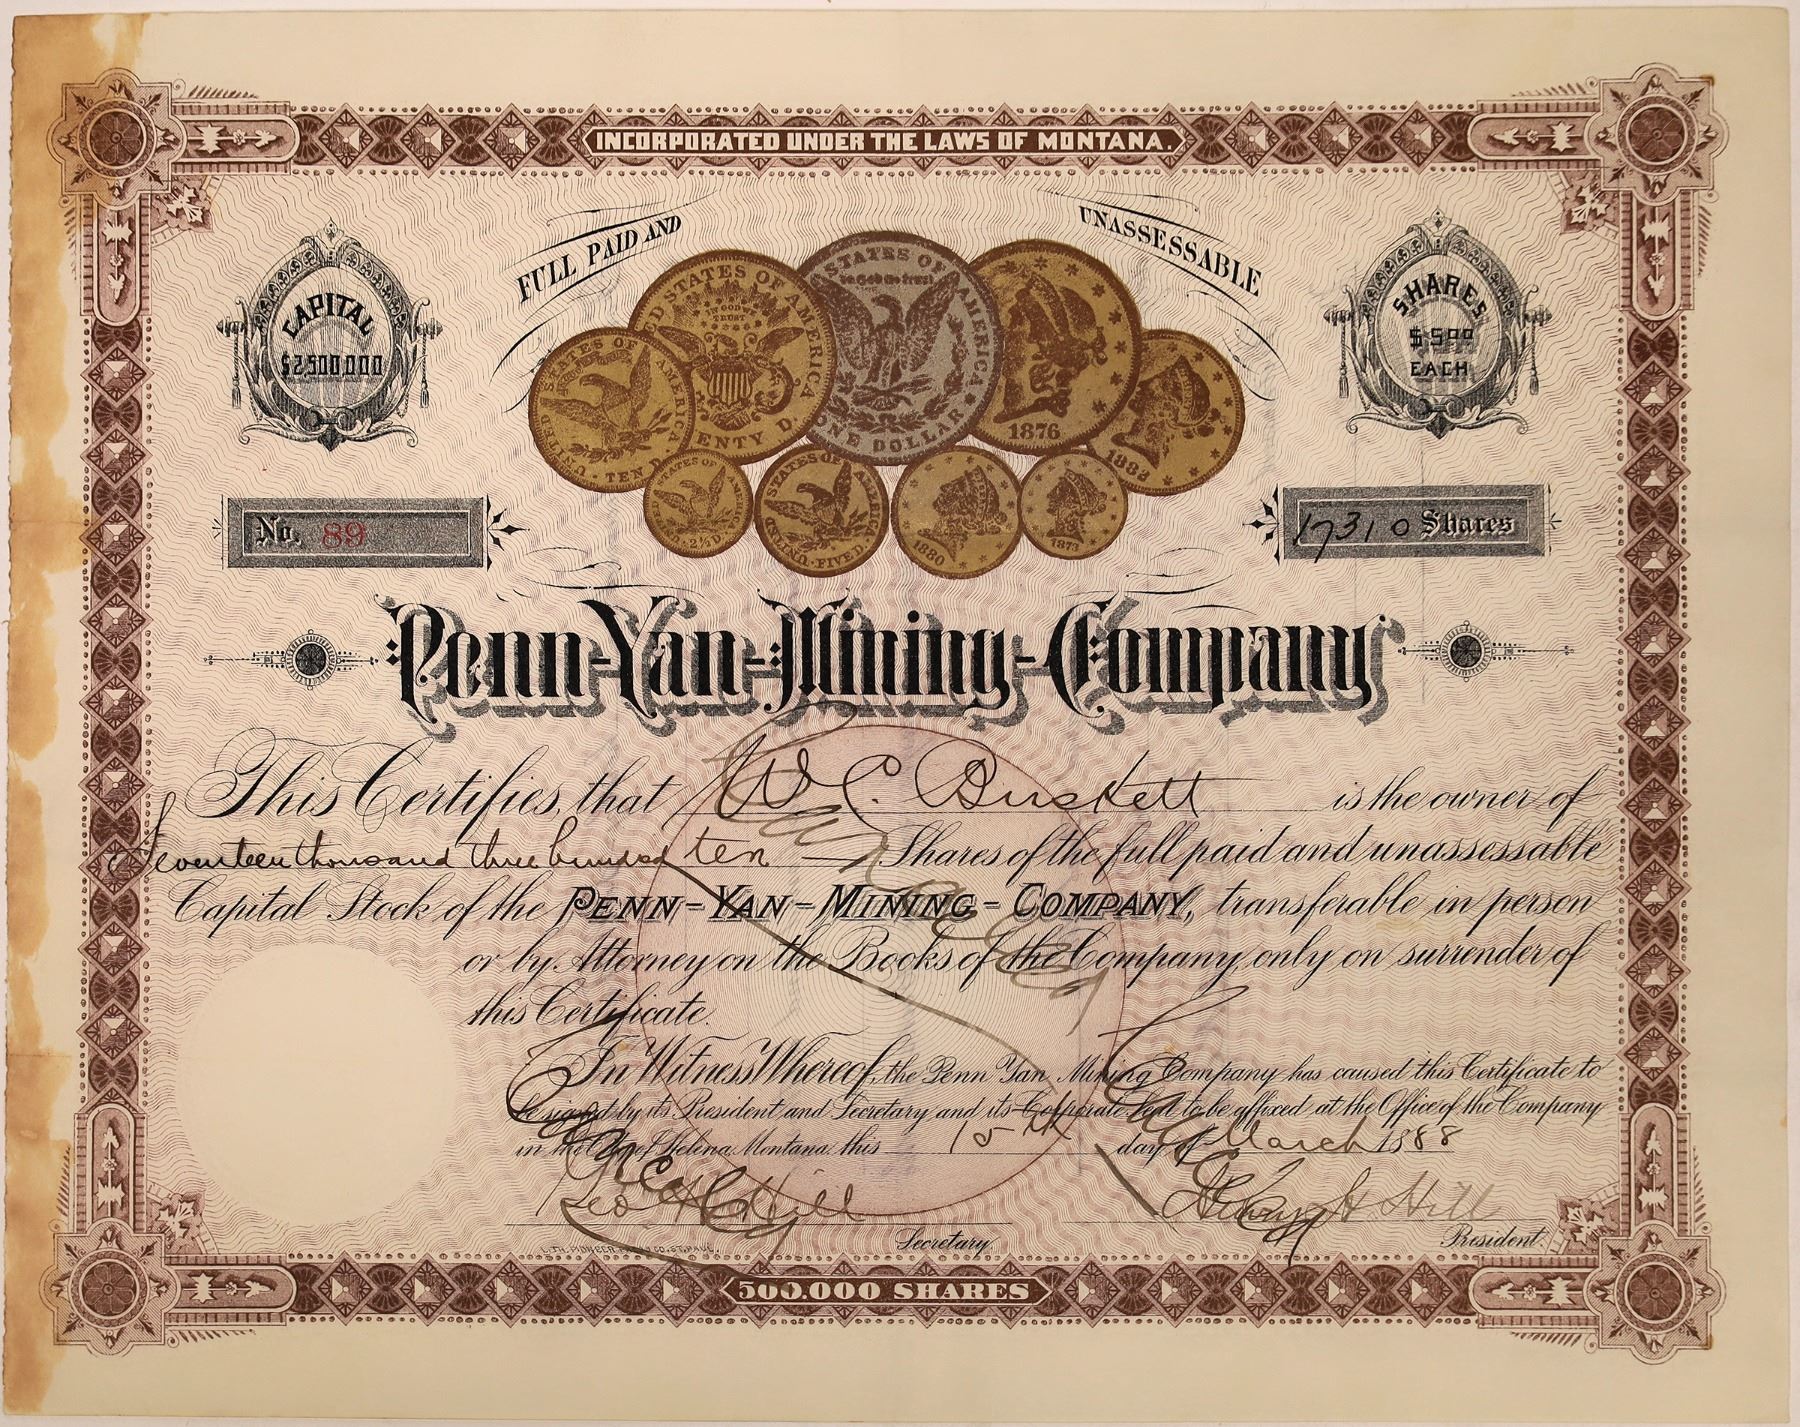 INCORPORATED UNDER THE LAWS OF MONTANA.
FULL PAID AND UNASSESSABLE
CAPITAL
$2,500,000
SHARES
$5.00
EACH
STATES OF AMERICA
UNITED TEN D.
ED STATES OF AMERICA
IN GOD WE TRUST
ENTY D.
STATES OF AMERICA
In God we trust
ONE DOLLAR
1876
1882
STATES OF AMERICA
2½ D.
STATES OF AMERICA
UNITED FIVE D.
1880
1873
No. 89
17310 Shares
Penn-Yan-Mining-Company
This Certifies, that W. C. Buskett is the owner of
Seventeen thousand three hundred ten Shares of the full paid and unassessable
Capital Stock of the PENN-YAN-MINING-COMPANY, transferable in person
or by Attorney on the Books of the Company, only on surrender of
this Certificate.
Cancelled
In Witness Whereof, the Penn Yan Mining Company has caused this Certificate to
be signed by its President and Secretary and its Corporate Seal to be affixed at the Office of the Company
in the City of Helena, Montana this 15th day of March 1888
Cancelled
Cancelled
Geo H Hill
Henry H Hill
Secretary
President
LITH. PIONEER PRESS CO. ST. PAUL.
500.000 SHARES